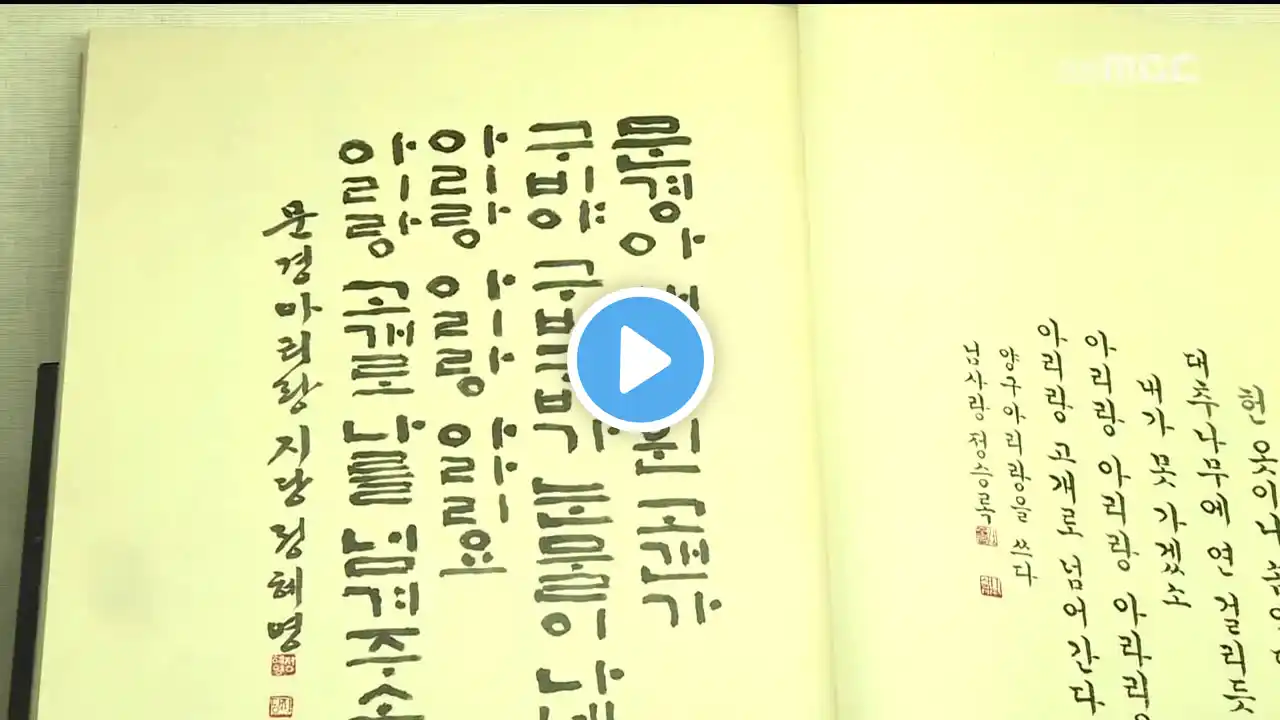 MBC
헌 옷이나
대추나무에 연 걸리듯
내가 못 가겠소
아리랑 아리랑 아라리
아리랑 고개로 넘어간다
양구아리랑을 쓰다
님사랑 정승록
문경
구부야 구부구부가 눈물이 난
아리랑 아리랑 아라리요
아리랑 고개로 날 넘겨주소
문경아리랑 지당 정혜명